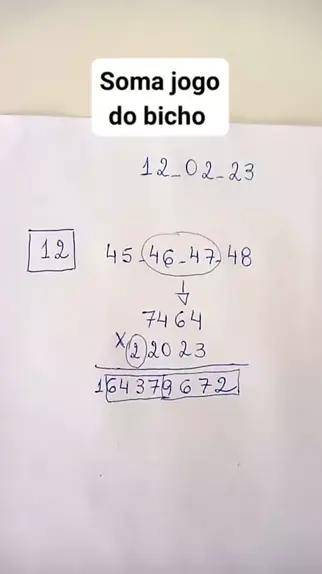 Soma jogo
do bicho
12_02_23
12 45-46-47-48
7464
X22023
164379672